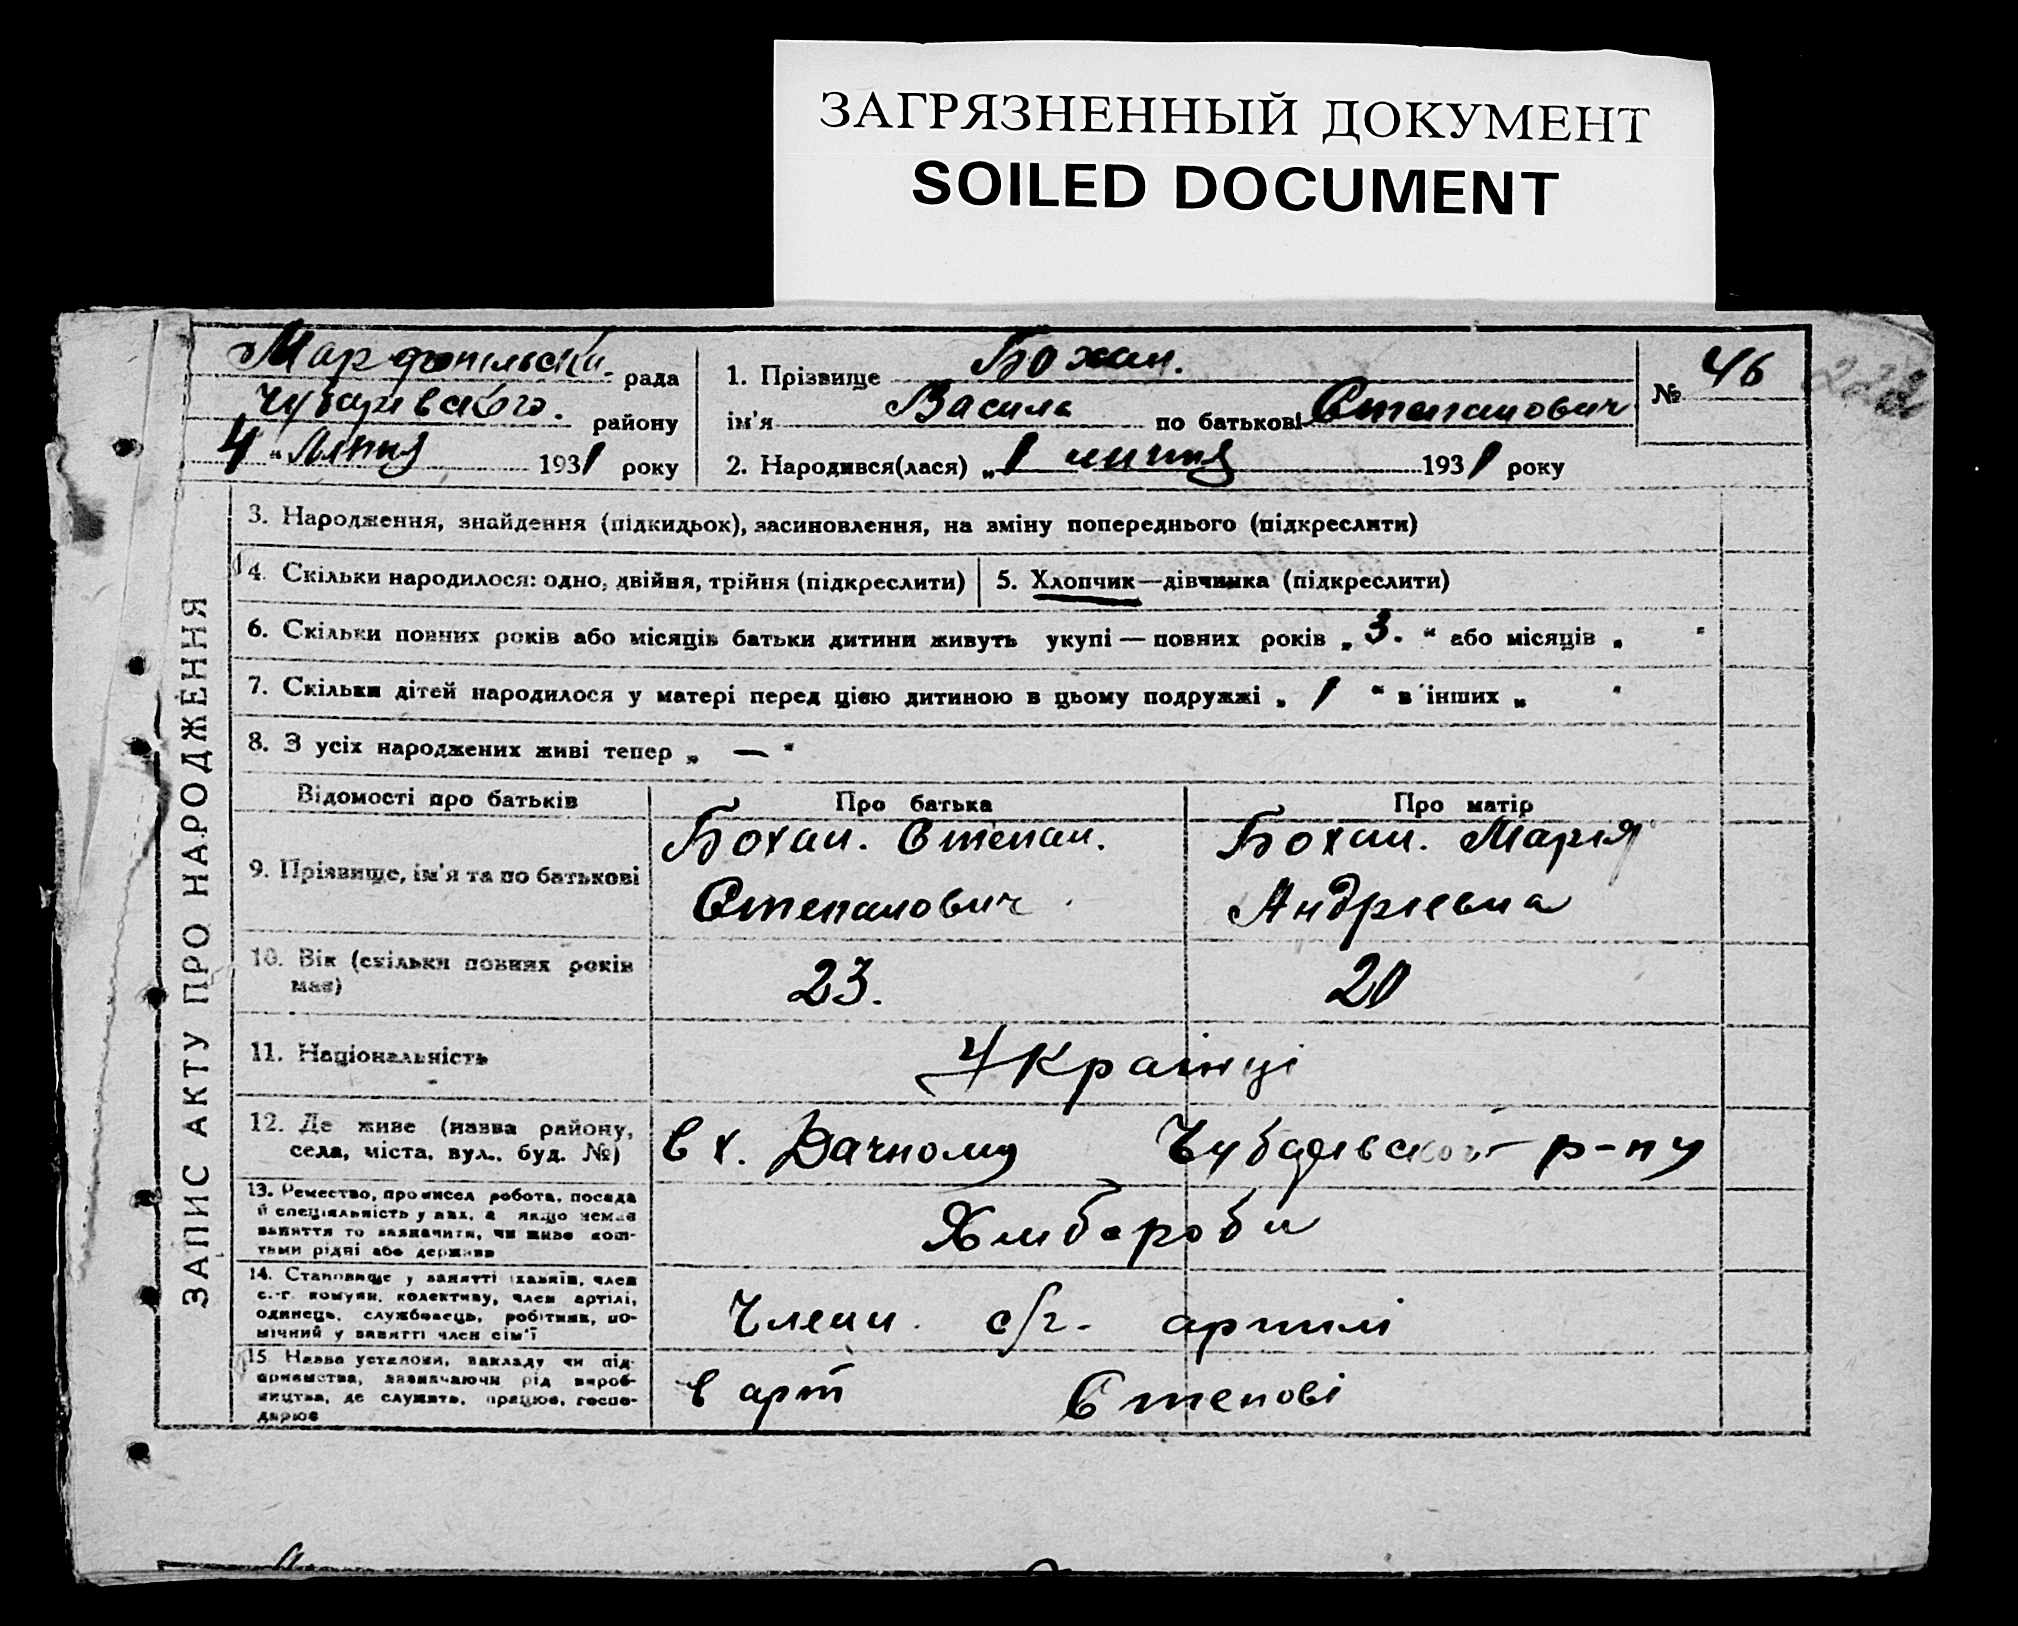 ЗАГРЯЗНЕННЫЙ ДОКУМЕНТ
SOILED DOCUMENT
Марфопільська рада
Чубарівського. району
4 " Липня 1931 року
1. Прізвище Бохан.
ім'я Василь по батькові Степанович
2. Народився(лася) „1 липня 1931 року
№ 46
ЗАПИС АКТУ ПРО НАРОДЖЕННЯ
3. Народження, знайдення (підкидьок), засиновлення, на зміну попереднього (підкреслити)
4. Скільки народилося: одно, двійня, трійня (підкреслити)
5. Хлопчик—дівчинка (підкреслити)
6. Скільки повних років або місяців батьки дитини живуть укупі — повних років „ 3. " або місяців „ "
7. Скільки дітей народилося у матері перед цією дитиною в цьому подружжі „ 1 " в інших „ "
8. З усіх народжених живі тепер „ — "
Відомості про батьків
Про батька
Про матір
9. Прізвище, ім'я та по батькові
Бохан. Степан.
Степанович
Бохан. Марія
Андрієвна
10. Вік (скільки повних років
має)
23.
20
11. Національність
Українці
12. Де живе (назва району,
села, міста, вул., буд. №)
в х. Дачному Чубарівського р-ну
13. Ремество, промисел робота, посада
й спеціяльність у них, а якщо немає
заняття то зазначити, чи живе кош-
тами рідні або держави
Хлібороби
14. Становище у занятті: хазяїн, член
с.-г. комуни, колективу, член артілі,
одинець, службовець, робітник, по-
мічний у занятті член сім'ї
Члени с/г. артілі
15. Назва установи, закладу чи під-
приємства, зазначаючи рід вироб-
ництва, де служить, працює, госпо-
дарює
в арт Степові